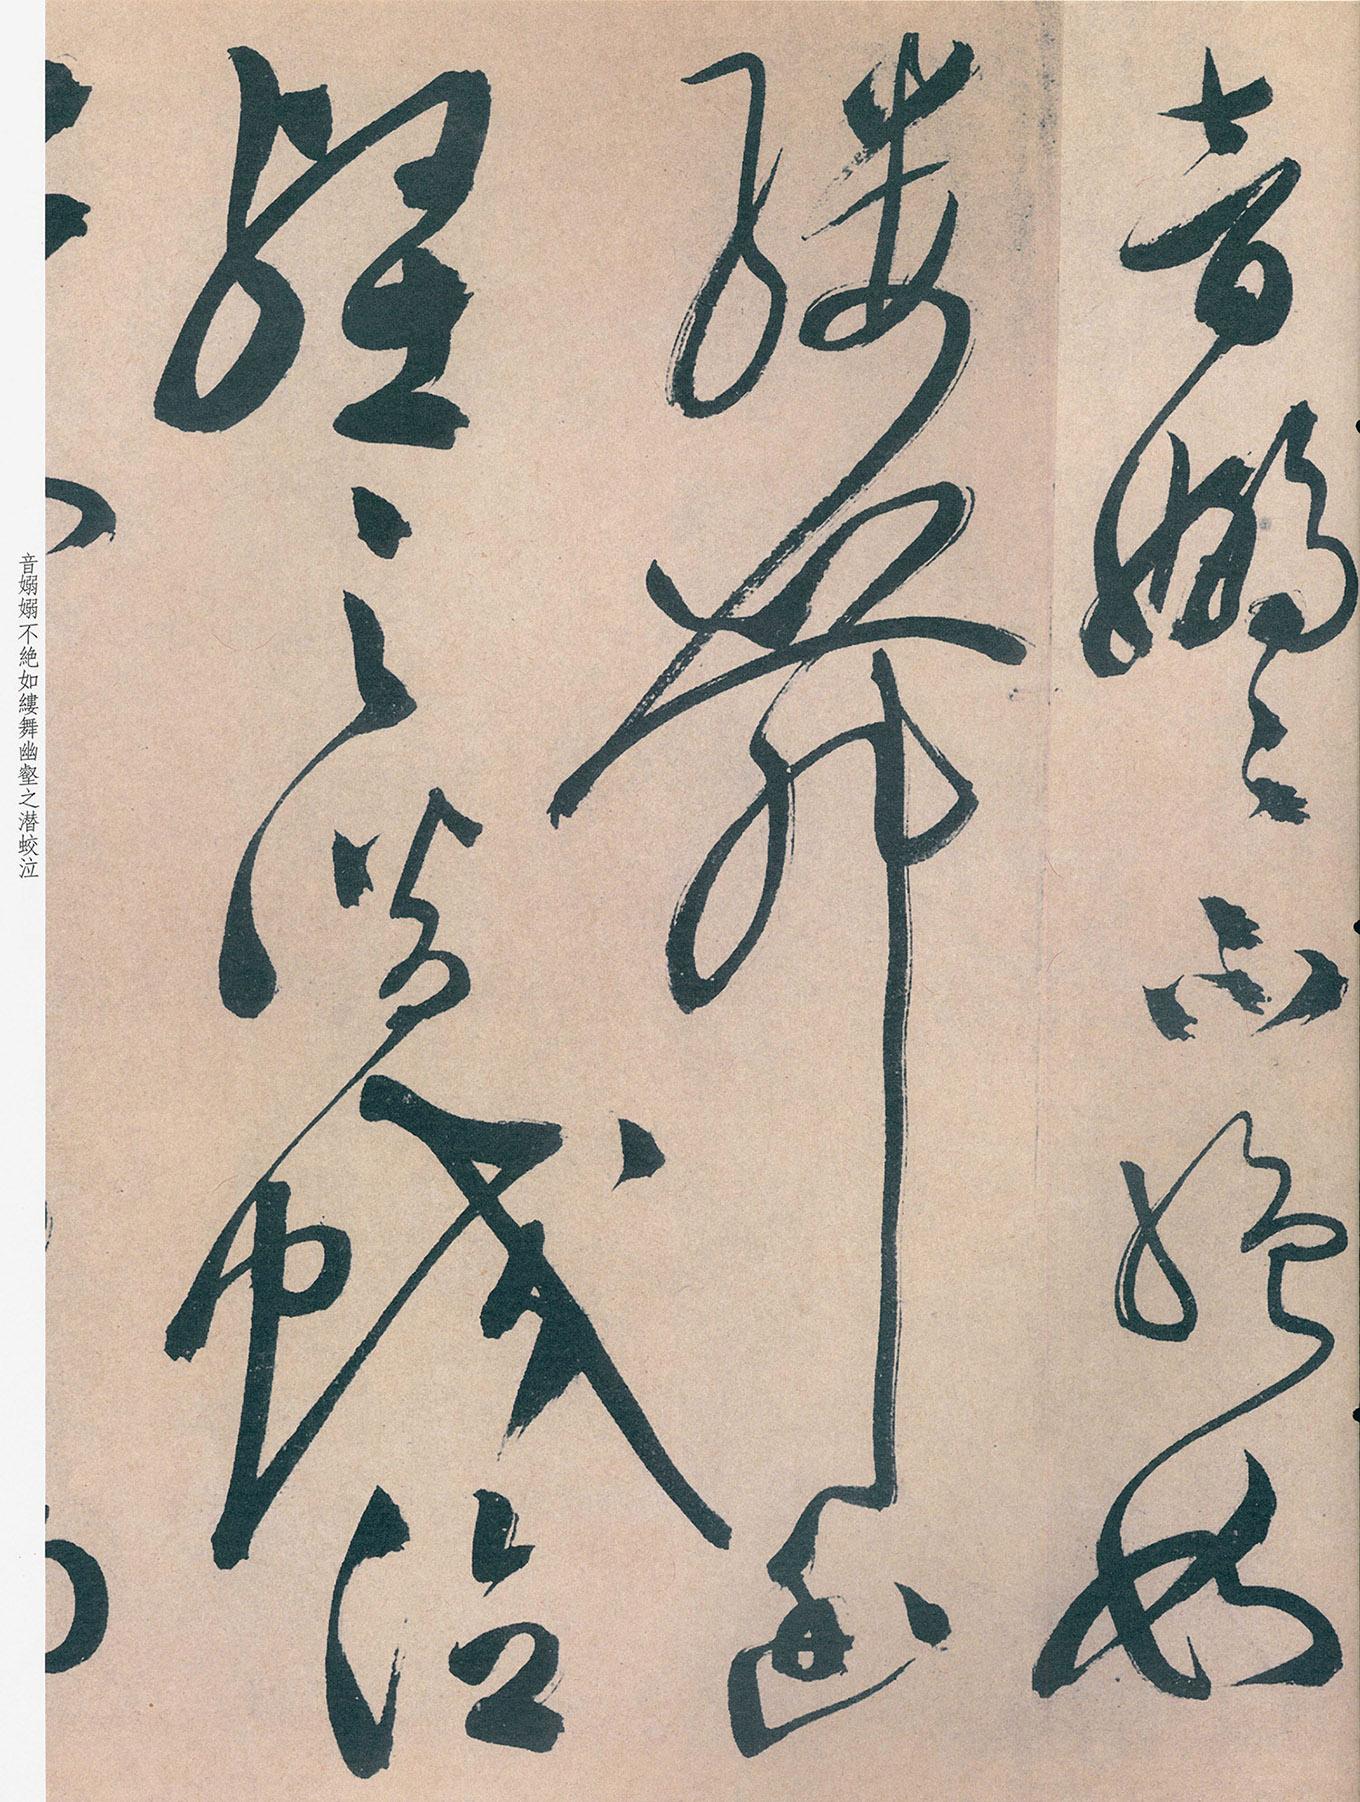 音嫋〻不絶如
縷舞幽
壑之潛蛟泣
音嫋嫋不絶如縷舞幽壑之潜蛟泣